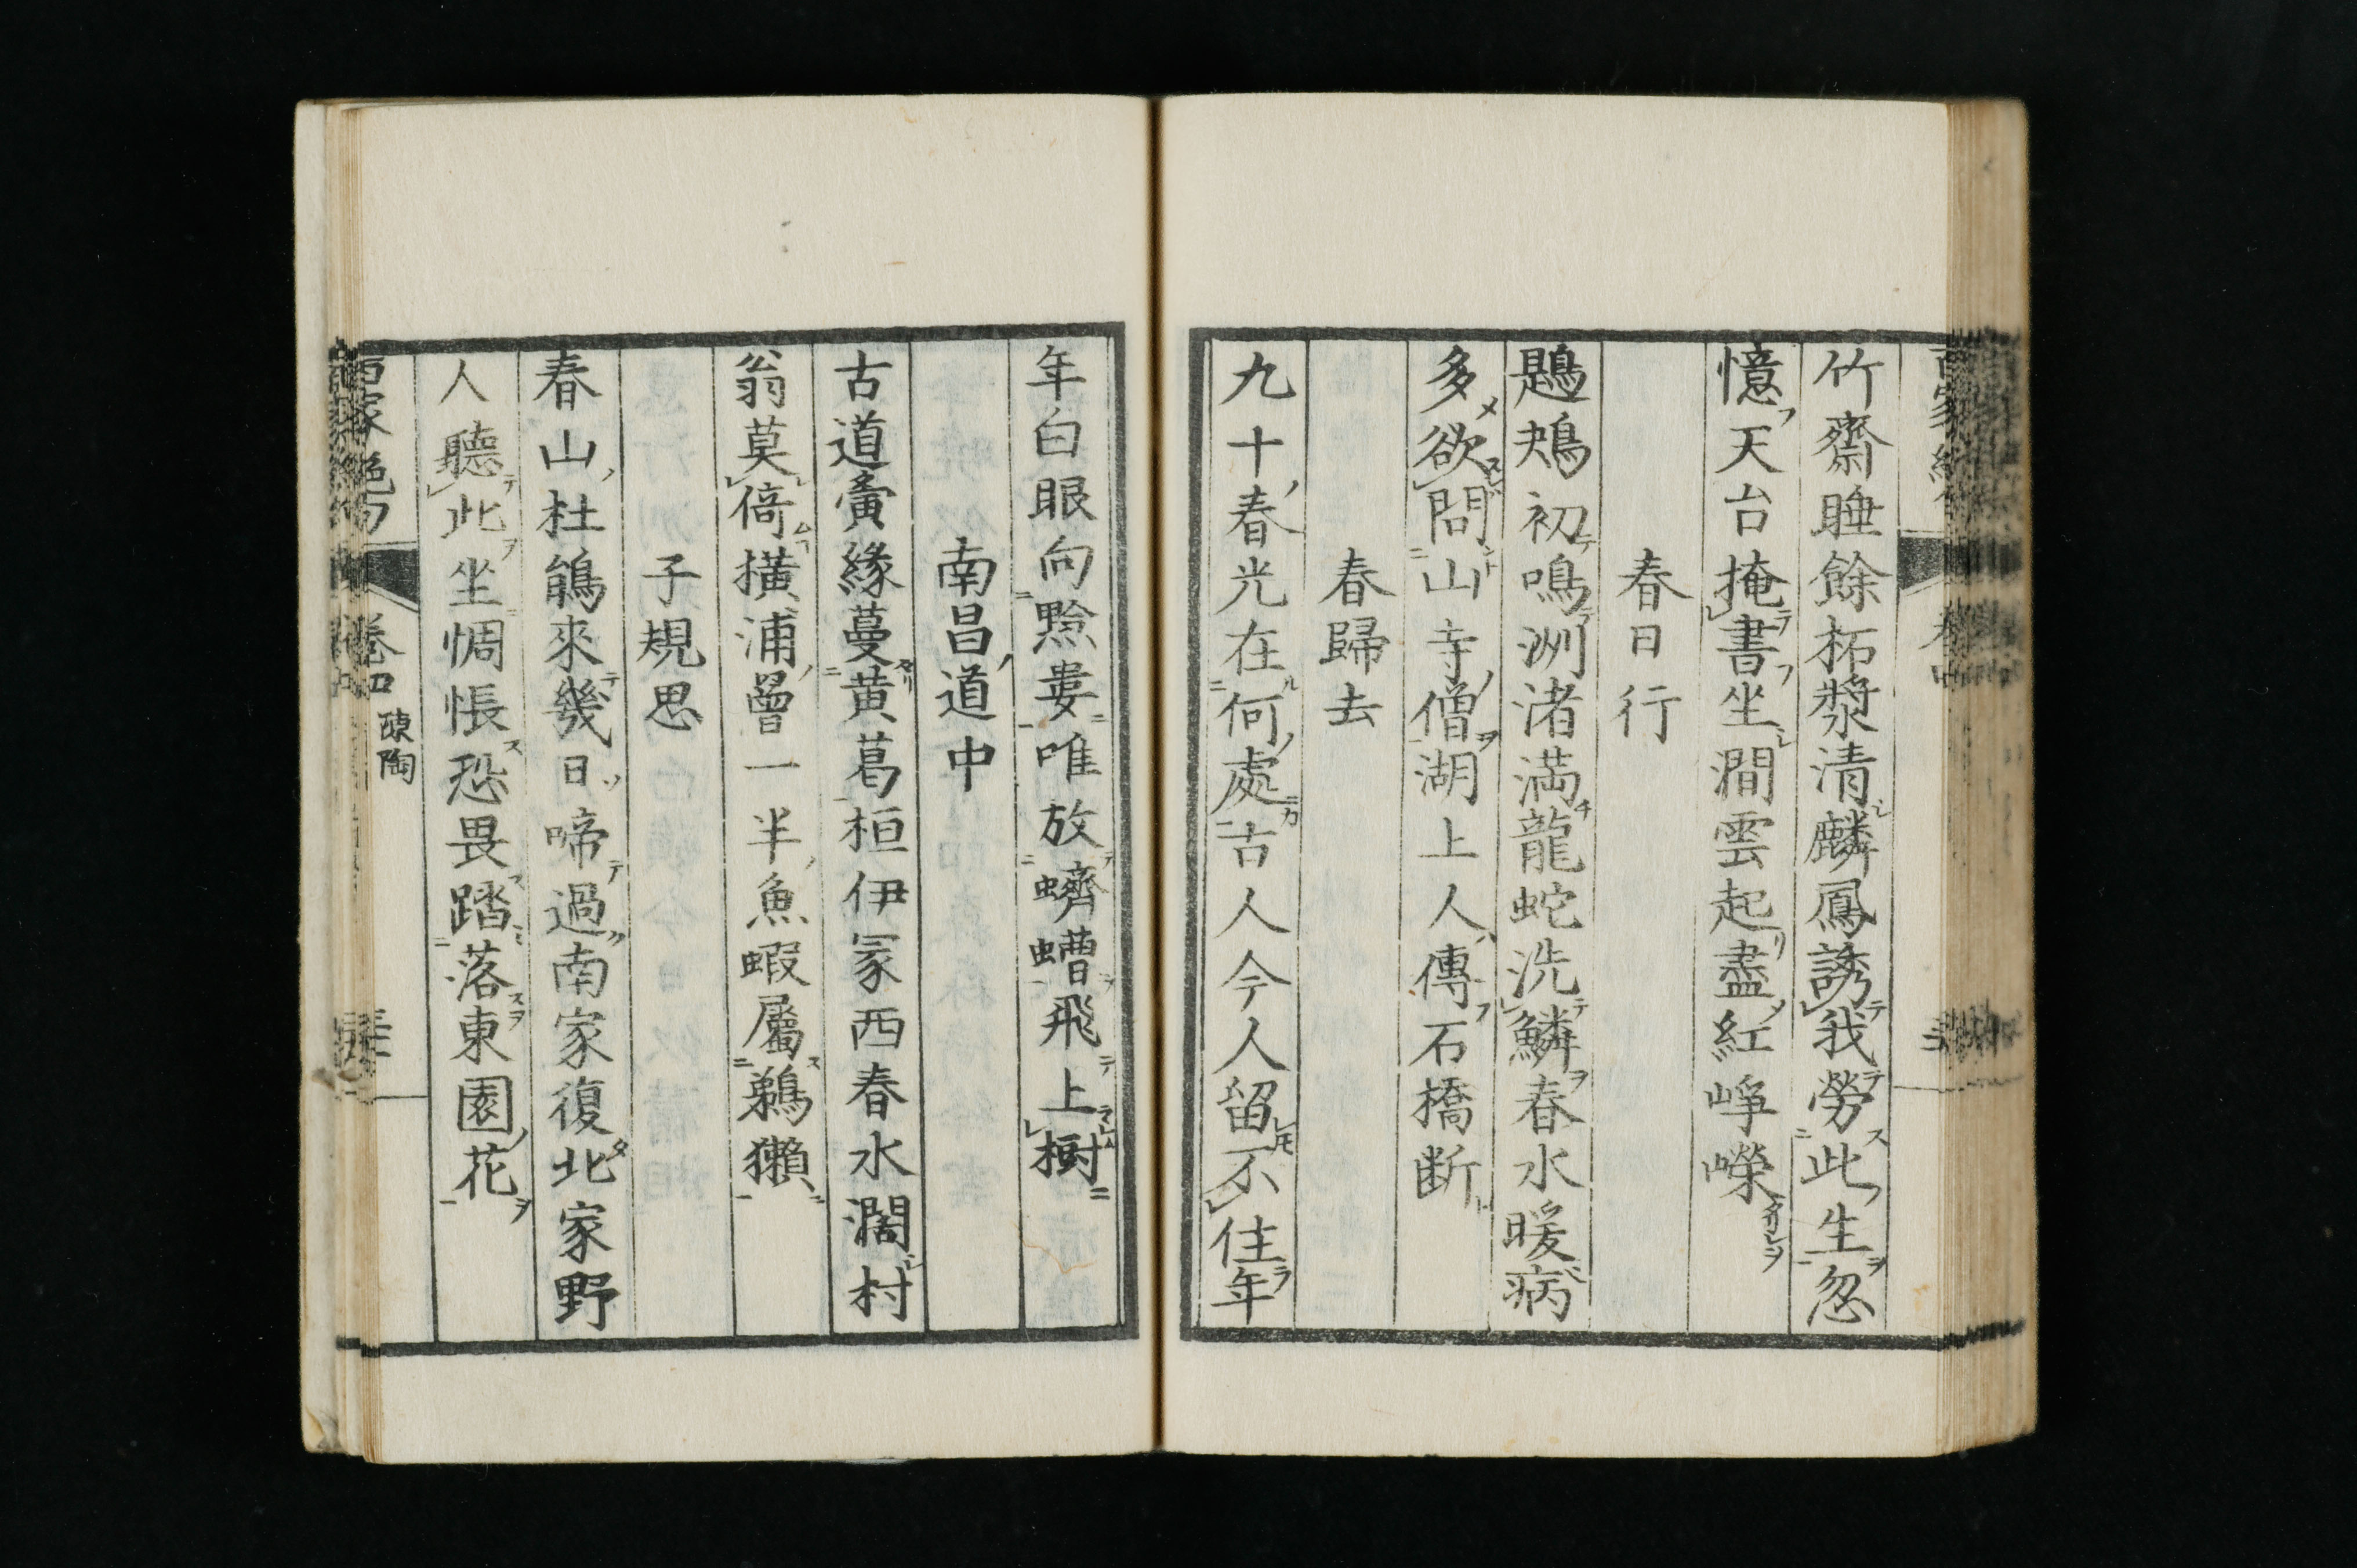 竹齋睡餘柘漿清麟鳳誘我勞此生忽
憶天台掩書坐澗雲起盡紅崢嶸
春日行
鶗鴂初鳴洲渚満龍蛇洗鱗春水暖病
多欲問山寺僧湖上人傳石橋断
春歸去
九十春光在何處古人今人留不住年
年白眼向黔婁唯放蠐螬飛上樹
南昌道中
古道夤緣蔓黄葛桓伊冢西春水濶村
翁莫倚橫浦罾一半魚蝦屬鵜獺
子規思
春山杜鵑來幾日啼過南家復北家野
人聽此坐惆悵恐畏踏落東園花
百家絶句
卷四
陳陶